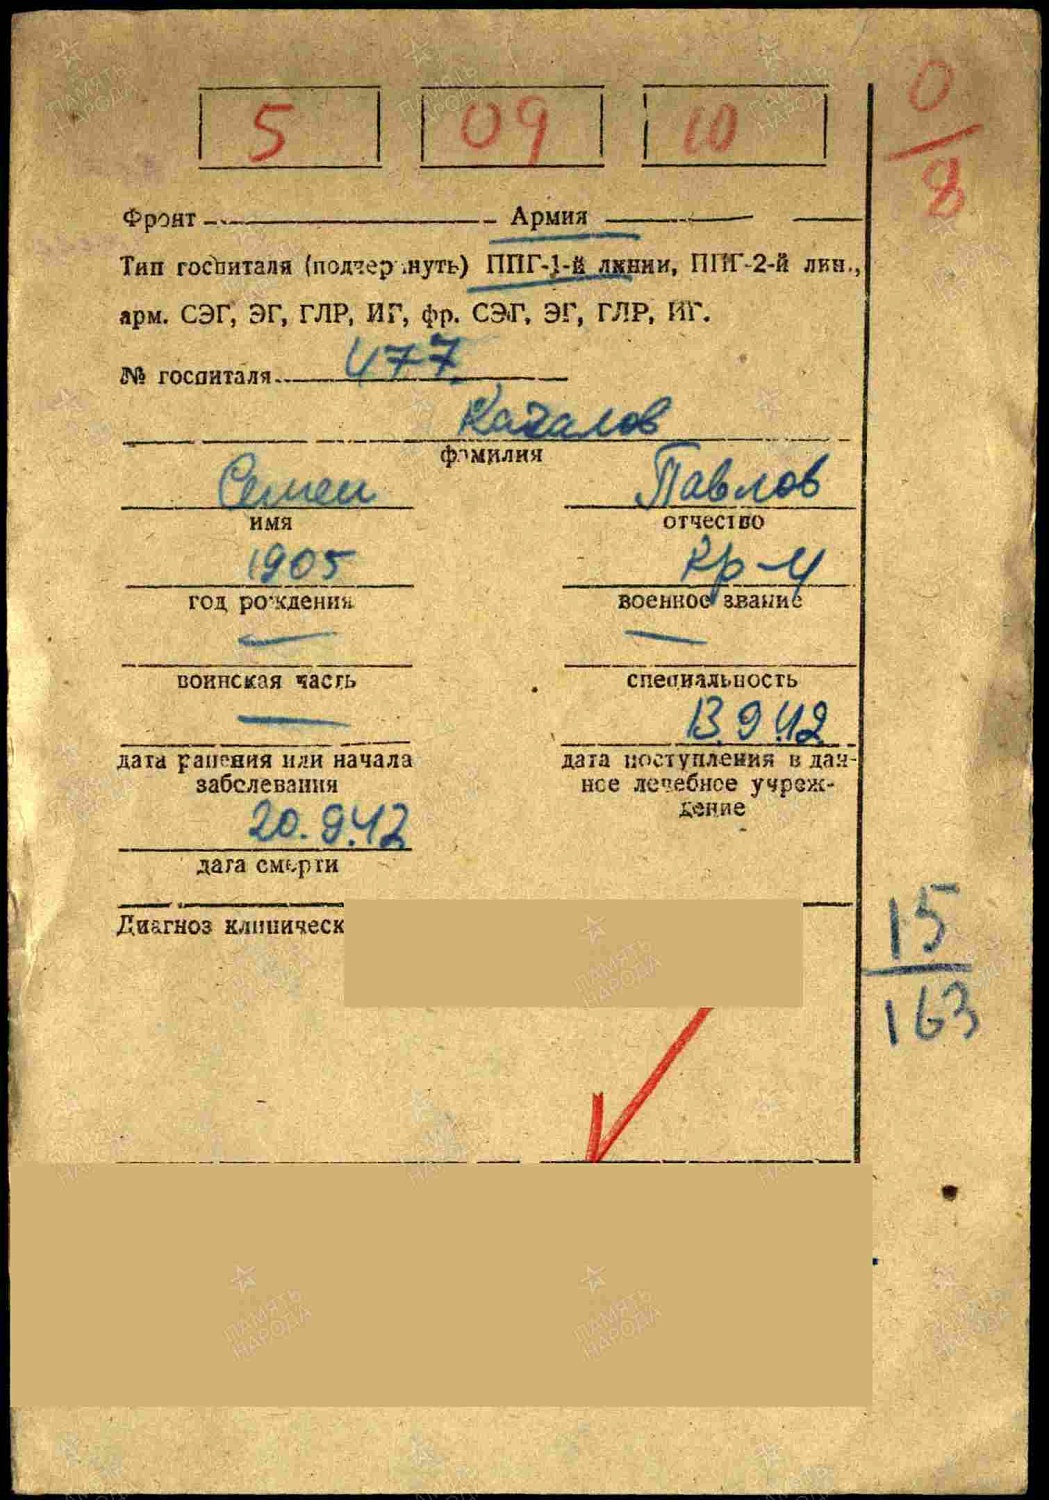 5 09 10
0/8
Фронт Армия
Тип госпиталя (подчеркнуть) ППГ-1-й линии, ППГ-2-й лин.,
арм. СЭГ, ЭГ, ГЛР, ИГ, фр. СЭГ, ЭГ, ГЛР, ИГ.
№ госпиталя 477.
Качалов
фамилия
Семен Павлов
имя отчество
1905 кр-ц
год рождения военное звание
воинская часть специальность
13.9.42
дата ранения или начала дата поступления в дан-
заболевания ное лечебное учреж-
дение
20.9.42
дата смерти
15/163
Диагноз клиническ
ПАМЯТЬ
НАРОДА